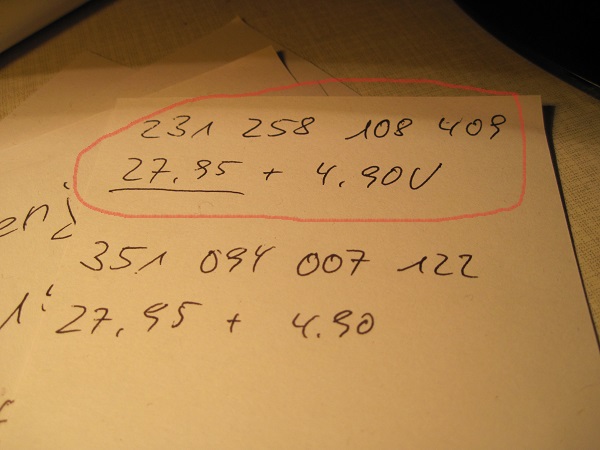 231 258 108 409
27,95 + 4.90V
351 094 007 122
27,95 + 4.90